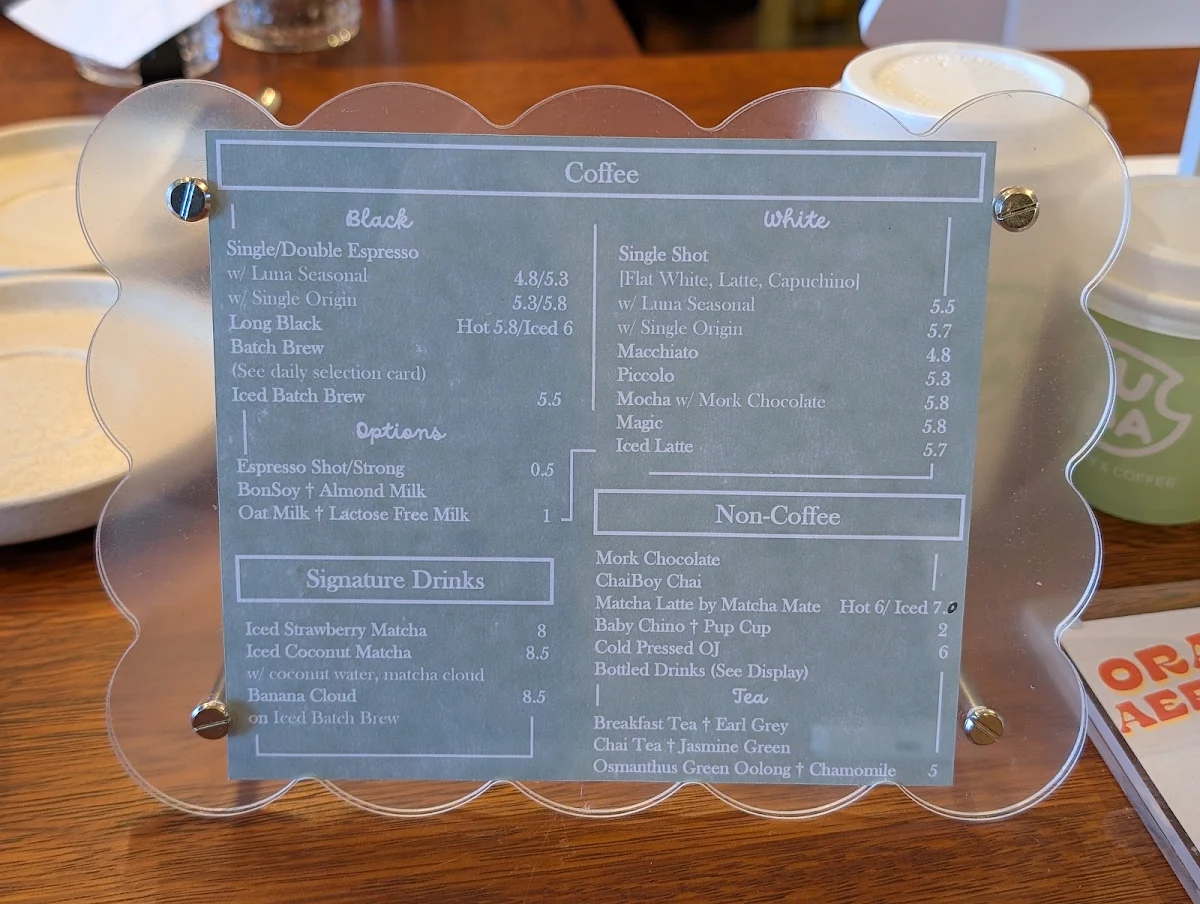 Coffee
Black
Single/Double Espresso
w/ Luna Seasonal 4.8/5.3
w/ Single Origin 5.3/5.8
Long Black Hot 5.8/Iced 6
Batch Brew
(See daily selection card)
Iced Batch Brew 5.5
Options
Espresso Shot/Strong 0.5
BonSoy † Almond Milk
Oat Milk † Lactose Free Milk 1
Signature Drinks
Iced Strawberry Matcha 8
Iced Coconut Matcha 8.5
w/ coconut water, matcha cloud
Banana Cloud 8.5
on Iced Batch Brew
White
Single Shot
[Flat White, Latte, Capuchino]
w/ Luna Seasonal 5.5
w/ Single Origin 5.7
Macchiato 4.8
Piccolo 5.3
Mocha w/ Mork Chocolate 5.8
Magic 5.8
Iced Latte 5.7
Non-Coffee
Mork Chocolate
ChaiBoy Chai
Matcha Latte by Matcha Mate Hot 6/ Iced 7.0
Baby Chino † Pup Cup 2
Cold Pressed OJ 6
Bottled Drinks (See Display)
Tea
Breakfast Tea † Earl Grey
Chai Tea † Jasmine Green
Osmanthus Green Oolong † Chamomile 5
& COFFEE